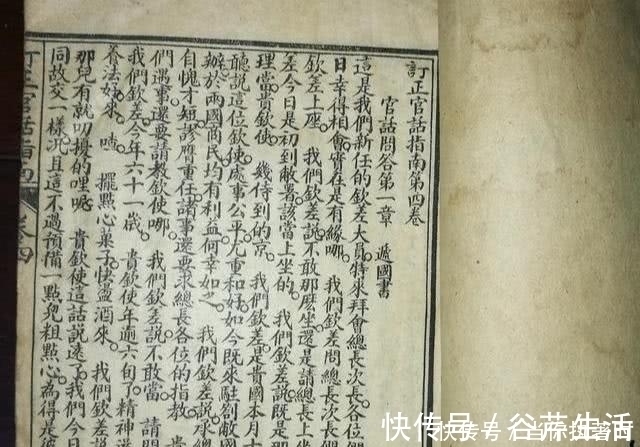 訂正官話指南第四卷
官話問答第一章 遞國書
這是我們新任的欽差大員特來拜會總長次長各位
日幸得相會實在是有緣哪。 我們欽差問總長次長
欽差上座。 我們欽差說不敢那麼坐還是請總長上坐
差今日是初到敝署該當上坐的。 我們欽差說既是那
理當貴欽使 幾待到的京。 我們欽差是貴國本月十
聽說這位欽使處事公平尤重和好如今既來駐劄敝國
辦於兩國商民均有利益何幸如之。 我們欽差說
自愧才短謬膺重任諸事還要求總長各位的指教
們遇事還要請教欽使哪。 我們欽差說不敢當 請問
我們欽差今年六十一歲。 貴欽使年逾六旬了精神
養法好來。 嗐 擺點心菓子快盪酒來。 我們欽差
那兒有就叨擾的哩呢 貴欽使這話說遠了我們今日
同故交一樣況且這不過預備一點兒粗點心為得是彼
訂正官話指南 卷四
快传号 / 谷花生活